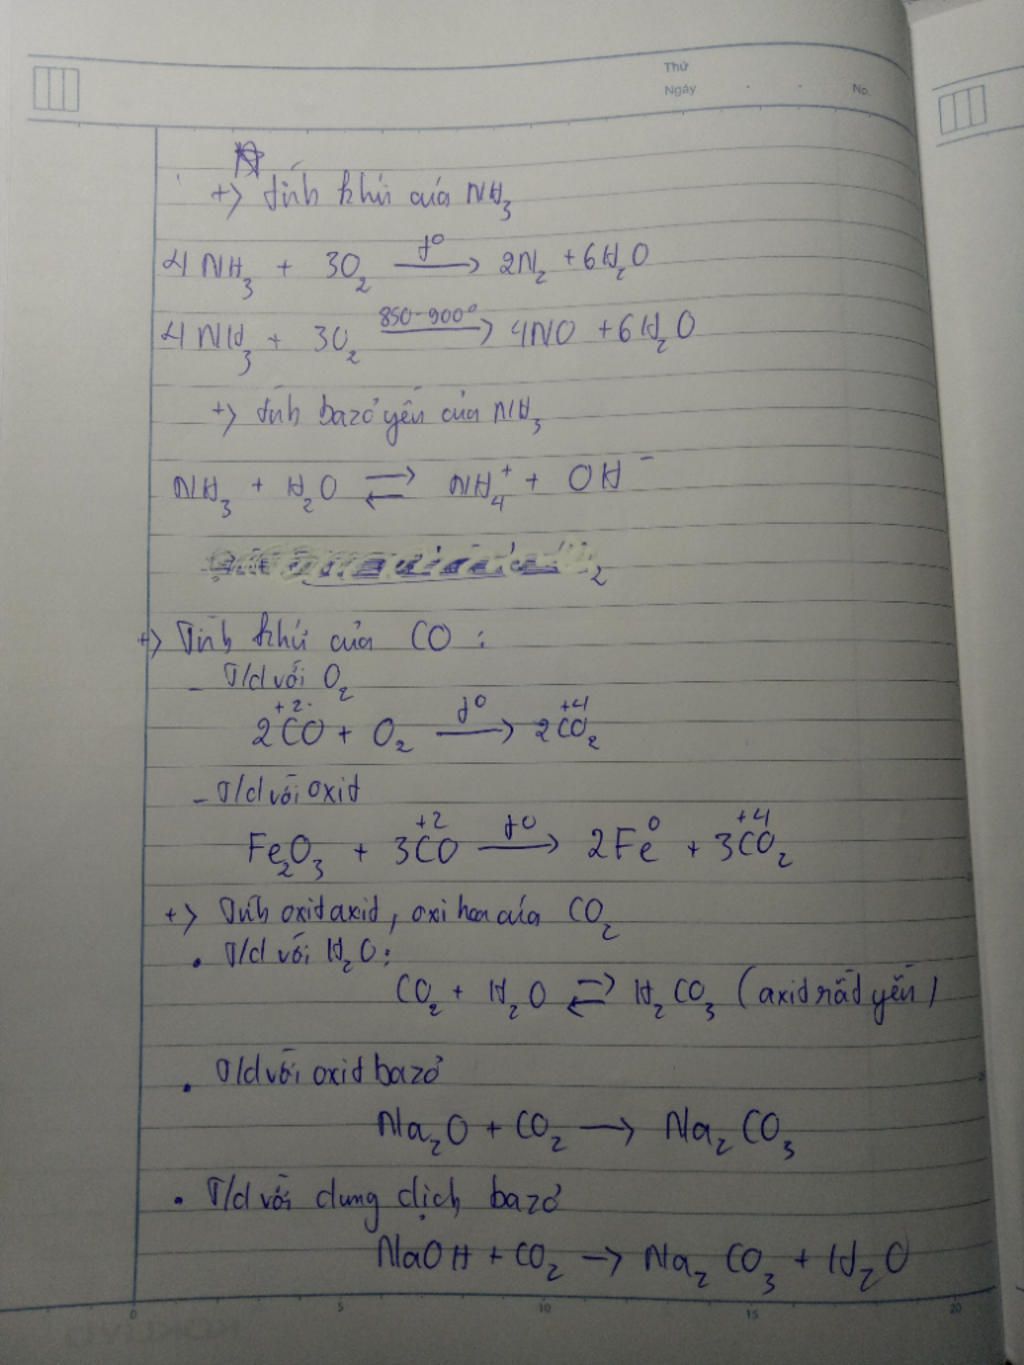 Thứ
Ngày . . No.
+> tính khử của NH₃
4NH₃ + 3O₂ —t°→ 2N₂ + 6H₂O
4NH₃ + 3O₂ —850-900°→ 4NO + 6H₂O
+> tính bazơ yếu của NH₃
NH₃ + H₂O ⇌ NH₄⁺ + OH⁻
+> Tính khử của CO :
- T/d với O₂
+2 t° +4
2CO + O₂ → 2CO₂
- T/d với oxit
+2 t° 0 +4
Fe₂O₃ + 3CO → 2Fe + 3CO₂
+> Tính oxit axit, oxi hoa của CO₂
• T/d với H₂O:
CO₂ + H₂O ⇌ H₂CO₃ (axit rất yếu)
• T/d với oxit bazơ
Na₂O + CO₂ → Na₂CO₃
• T/d với dung dịch bazơ
NaOH + CO₂ → Na₂CO₃ + H₂O
0 5 10 15 20